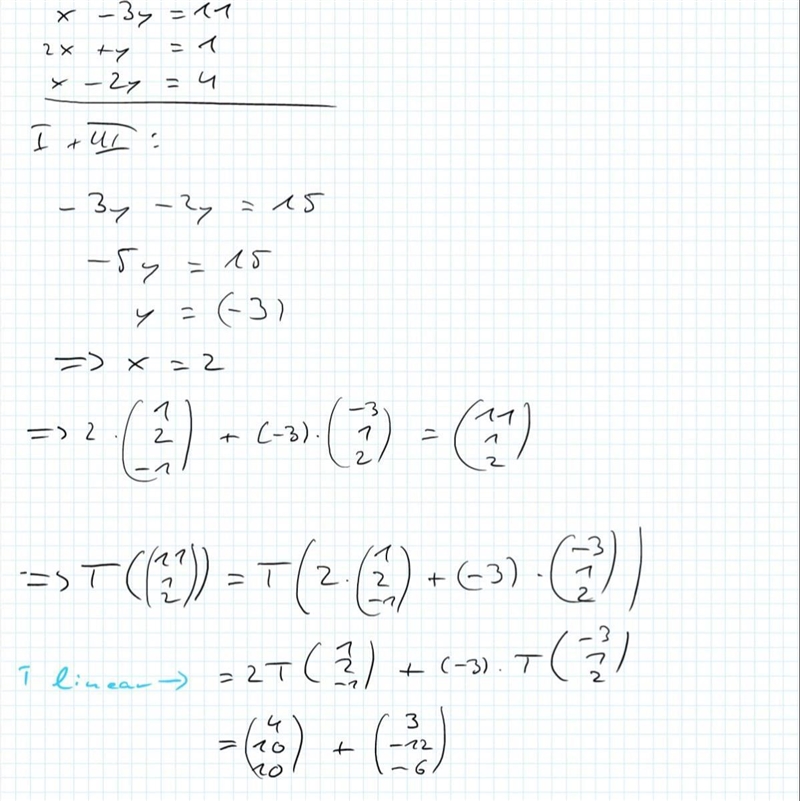 x - 3y = 11
2x + y = 1
x - 2y = 4
I + III :
- 3y - 2y = 15
-5y = 15
y = (-3)
=> x = 2
=> 2 · (1 2 -1) + (-3) · (-3 1 2) = (11 1 2)
=> T((11 1 2)) = T(2 · (1 2 -1) + (-3) · (-3 1 2))
T linear -> = 2T(1 2 -1) + (-3) · T(-3 1 2)
= (4 10 10) + (3 -12 -6)